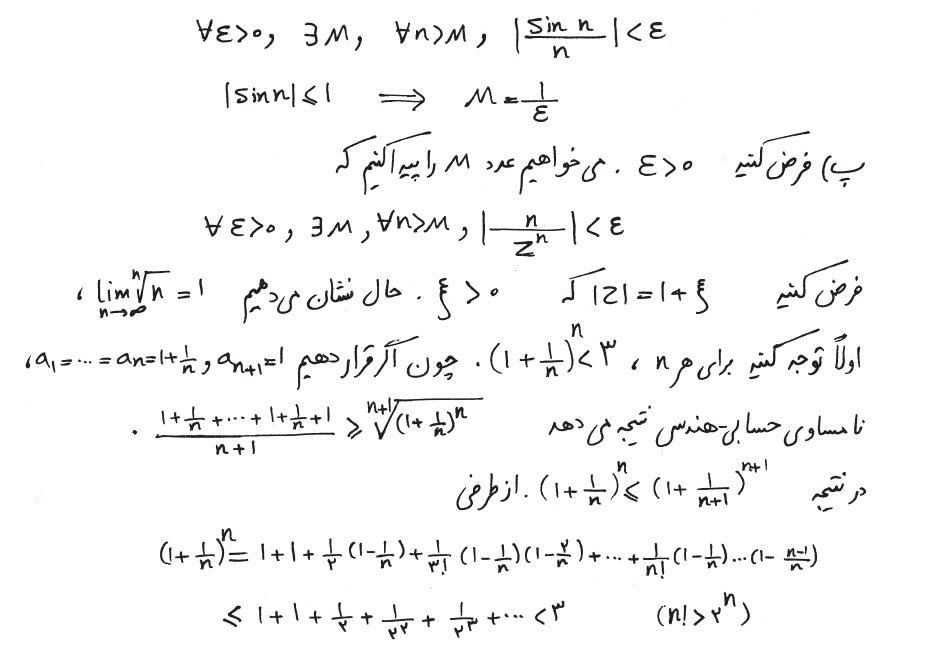 ∀ε>0, ∃M, ∀n>M, |sin n / n| < ε
|sin n| ≤ 1 ⟹ M = 1/ε
پ) فرض کنید ε>0 . می‌خواهیم عدد M را پیدا کنیم که
∀ε>0, ∃M, ∀n>M, |n / zⁿ| < ε
فرض کنید |z| = 1+ξ که ξ>0 . حال نشان می‌دهیم lim_{n→∞} ⁿ√n = 1 ،
اولاً توجه کنید برای هر n ، (1+1/n)ⁿ < ۳ . چون اگر قرار دهیم a₁=⋯=aₙ=1+1/n و aₙ₊₁=1 ،
نامساوی حسابی-هندسی نتیجه می‌دهد (1+1/n+⋯+1+1/n+1)/(n+1) ≥ ⁿ⁺¹√((1+1/n)ⁿ) .
در نتیجه (1+1/n)ⁿ ≤ (1+1/(n+1))ⁿ⁺¹ . از طرفی
(1+1/n)ⁿ = 1+1+1/۲(1-1/n)+1/۳!(1-1/n)(1-۲/n)+⋯+1/n!(1-1/n)⋯(1-(n-1)/n)
≤ 1+1+1/۲+1/۲²+1/۲³+⋯ < ۳ (n! > ۲ⁿ)